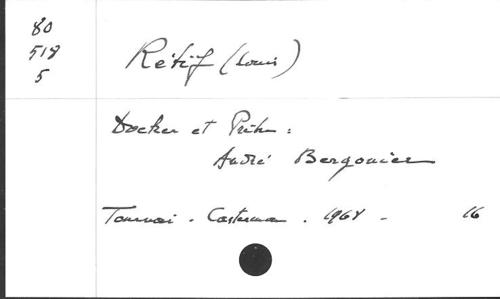 80
518
5
Rétif (Louis)
Docker et Prêtre :
André Bergonier
Tournai - Casterman . 1968 - 16